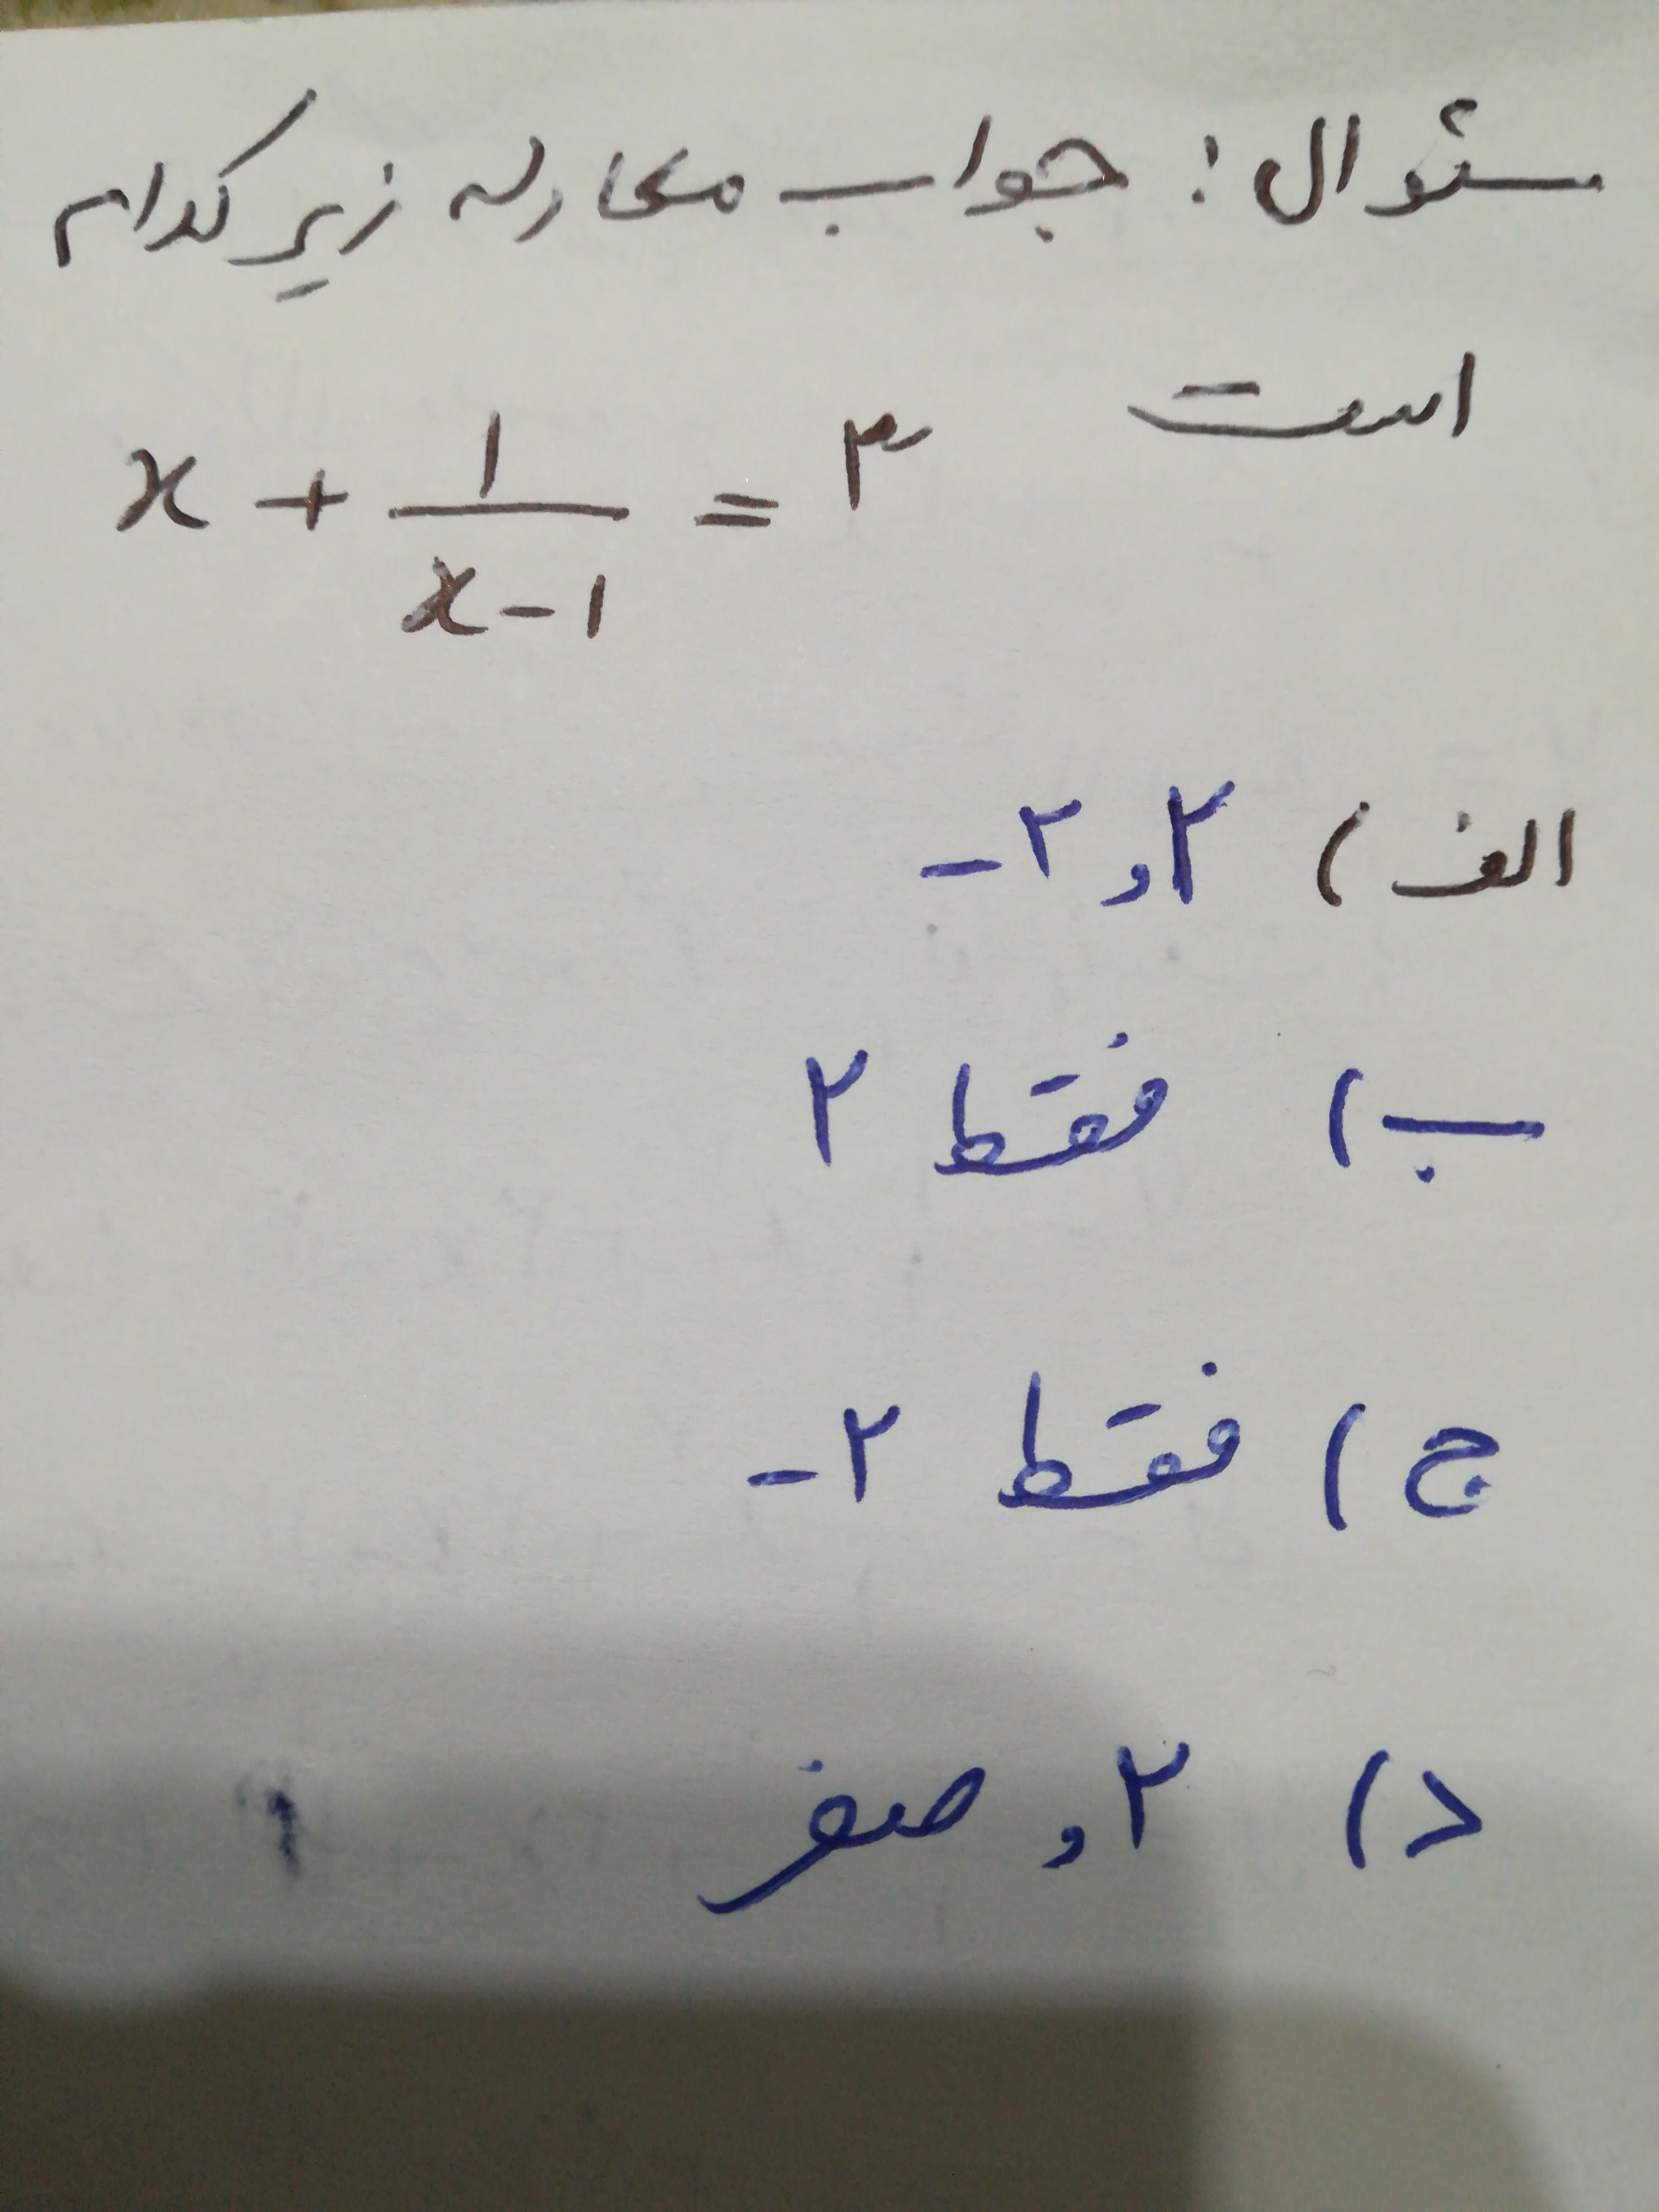 سئوال: جواب معادله زیر کدام
است
x + ۱/(x-۱) = ۳
الف) ۲ و ۲-
ب) فقط ۲
ج) فقط ۲-
د) ۲ و صفر
۱